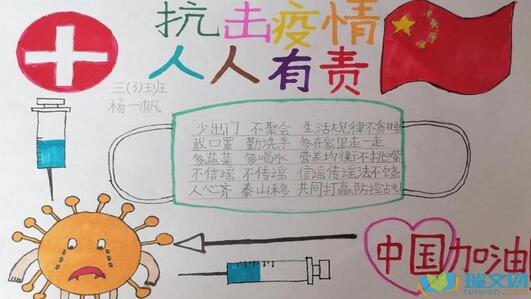 抗击疫情
人人有责
三(3)班
杨一帆
少出门 不聚会 生活规律不贪睡
戴口罩 勤洗手 多在家里走一走
多蔬菜 多喝水 营养均衡不挑嘴
不信谣 不传谣 信谣传谣法不饶
人心齐 泰山移 共同打赢防控战
中国加油
瑞文网
ruiwen.com